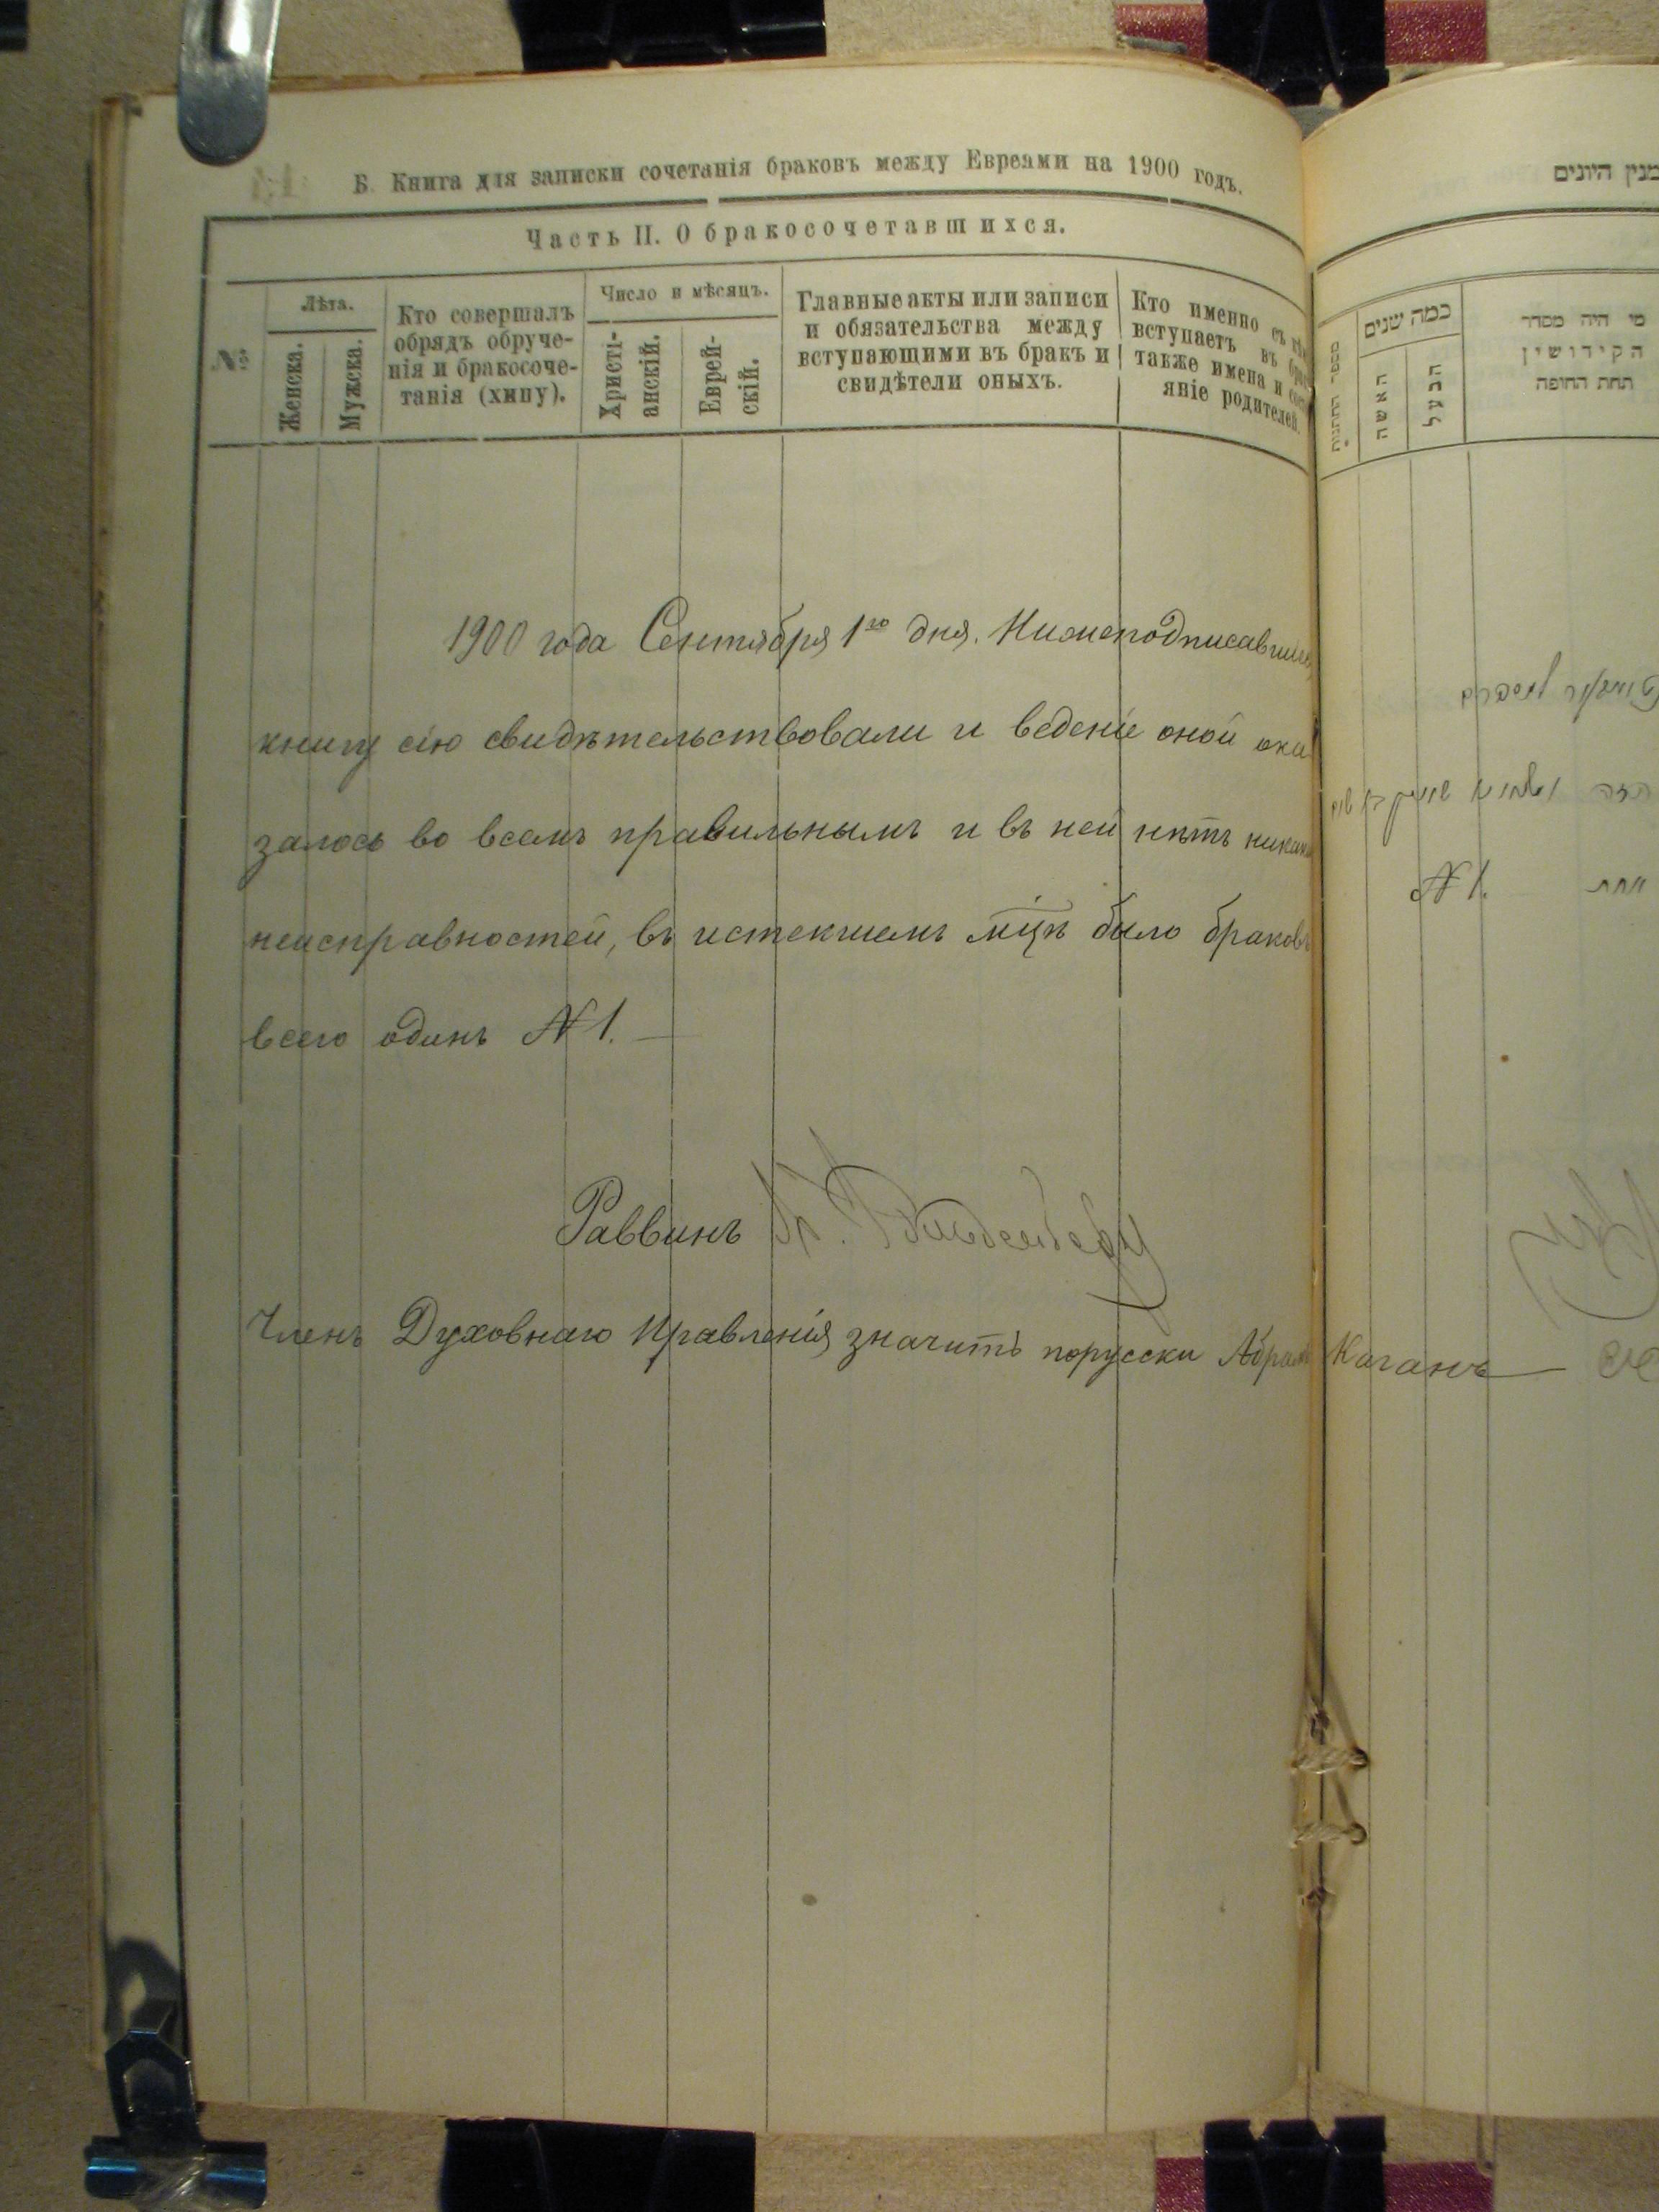 Б. Книга для записки сочетанія браковъ между Евреями на 1900 годъ.
Часть II. О бракосочетавшихся.
№
Лѣта.
Женска.
Мужска.
Кто совершалъ
обрядъ обруче-
нія и бракосоче-
танія (хипу).
Число и мѣсяцъ.
Христі-
анскій.
Еврей-
скій.
Главные акты или записи
и обязательства между
вступающими въ бракъ и
свидѣтели оныхъ.
Кто именно съ
вступаетъ въ
также имена и
яніе родителей.
1900 года Сентября 1го дня. Нижеподписавшіеся
книгу сію свидѣтельствовали и веденіе оной ока
залось во всемъ правильнымъ и въ ней нѣтъ
неисправностей, въ истекшемъ мцѣ было браковъ
всего одинъ N 1. —
Раввинъ
Членъ Духовнаго Правленія значитъ порусски Абрамъ Каганъ
מנין היונים
כמה שנים
האשה
הבעל
מי היה מסדר
הקידושין
תחת החופה
N 1.